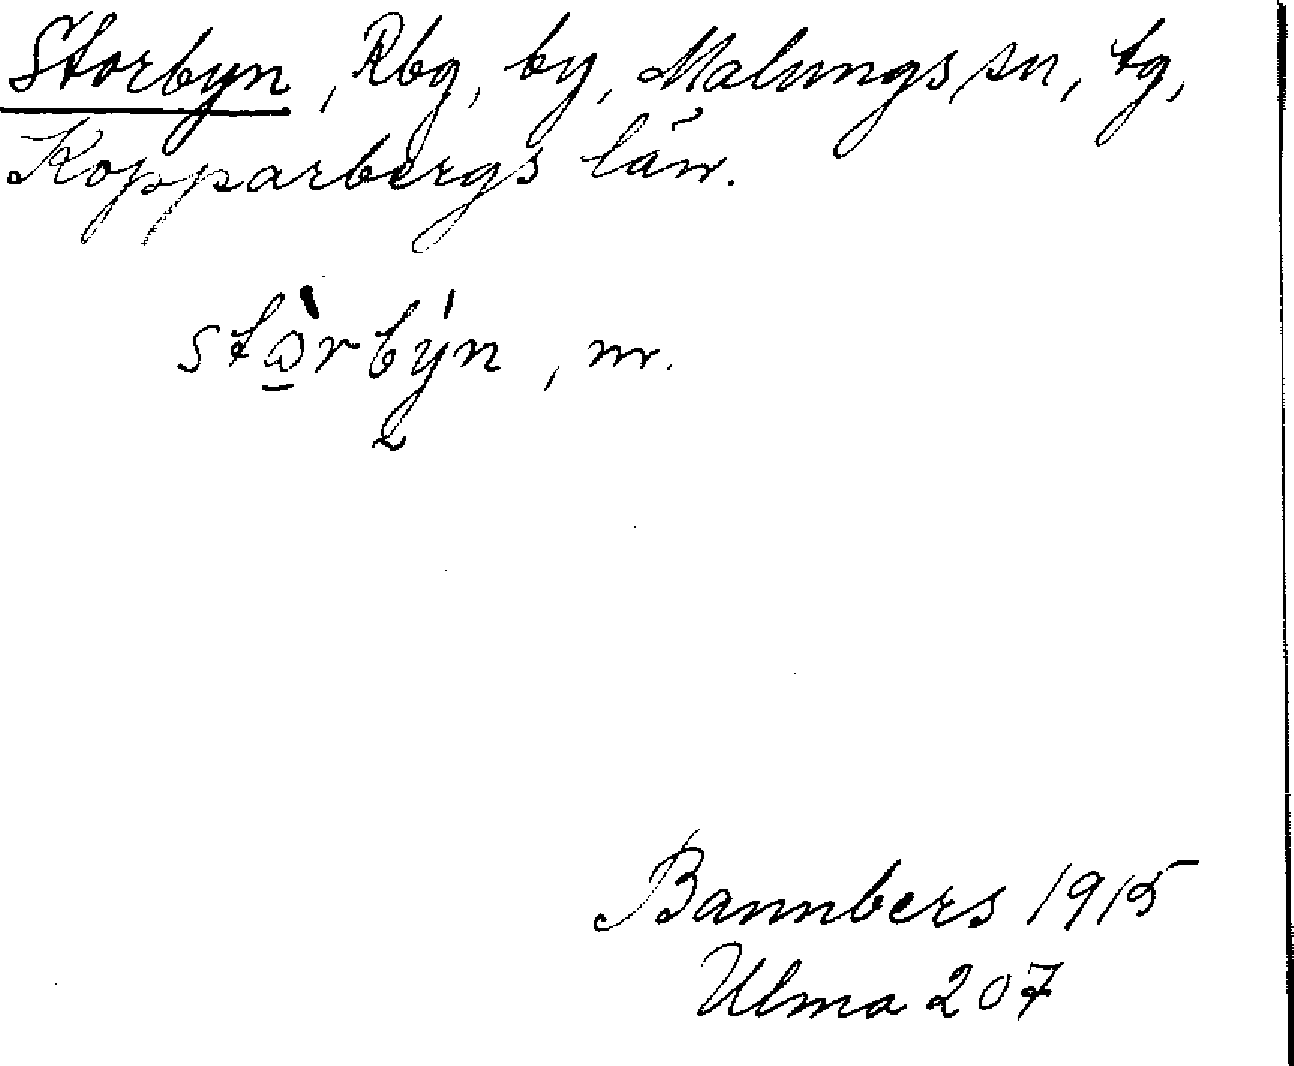 Storbyn, Rbg, by, Malungs sn, tg,
Kopparbergs län.
stòrbýn, nr.
Bannbers 1915
Ulma 207